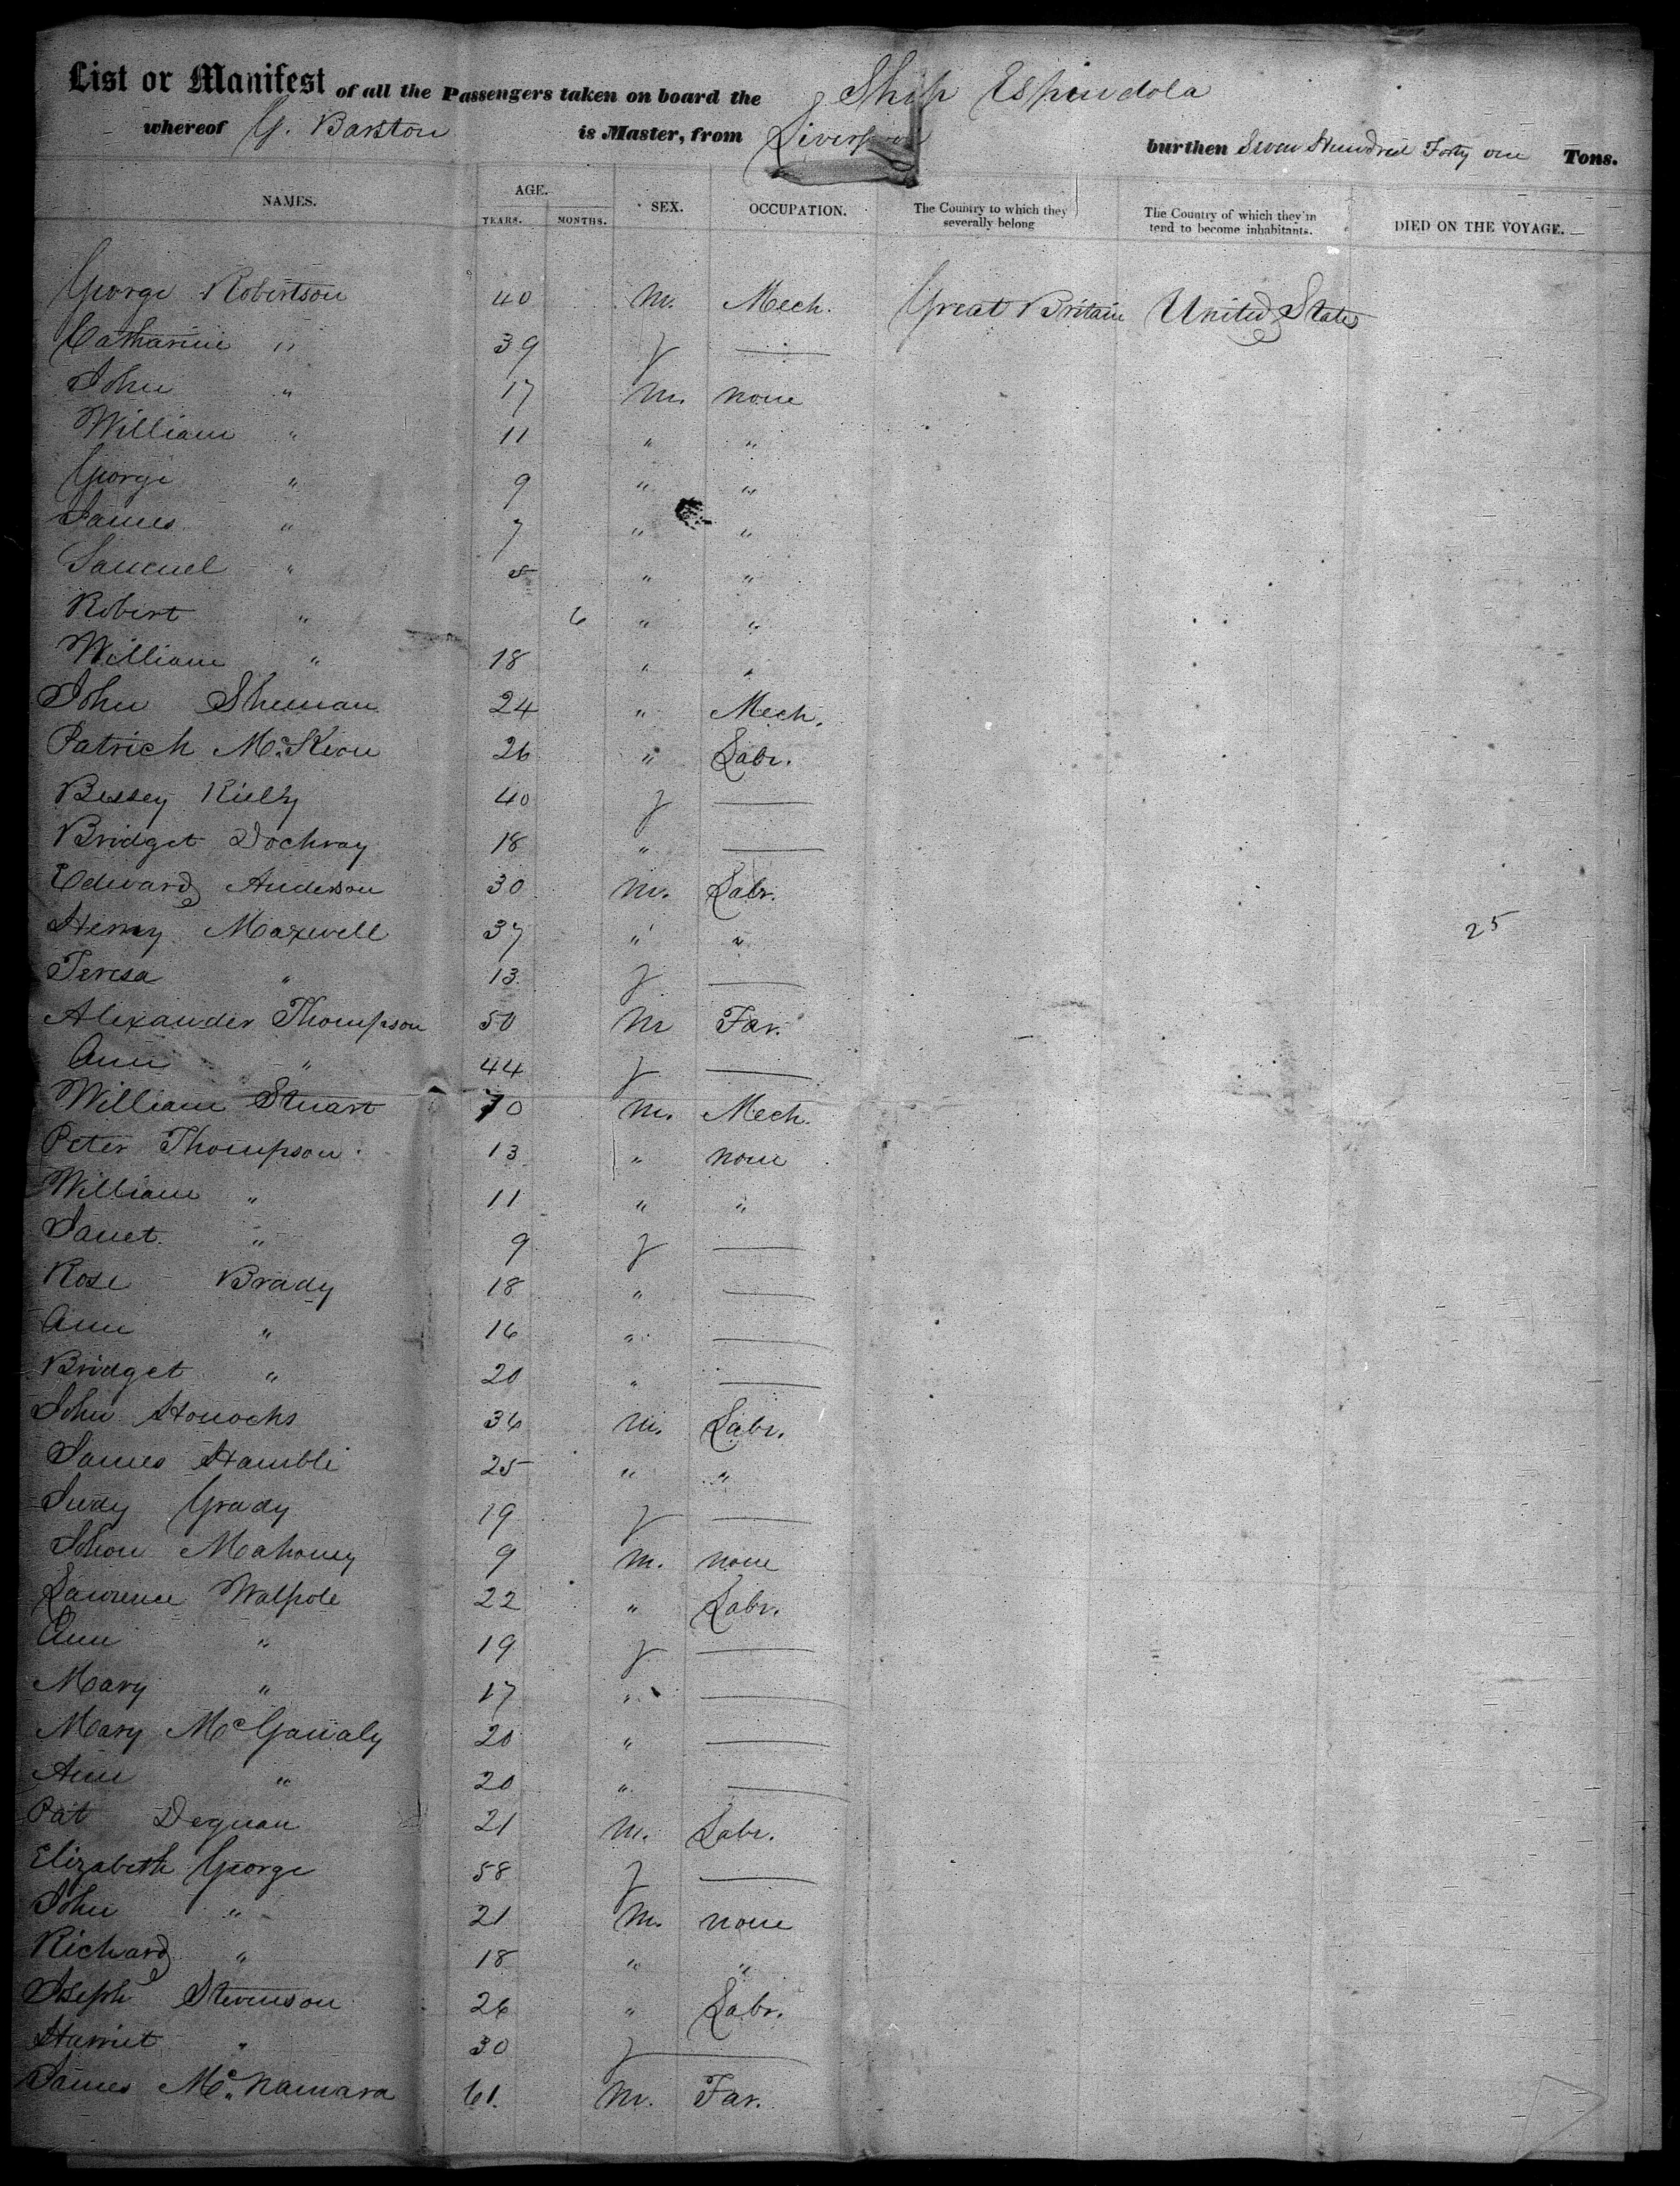 List or Manifest of all the Passengers taken on board the Ship Espindola
whereof G. Barstow is Master, from Liverpool burthen Seven Hundred Forty one Tons.
NAMES. AGE. SEX. OCCUPATION. The Country to which they severally belong The Country of which they in tend to become inhabitants. DIED ON THE VOYAGE.
YEARS. MONTHS.
George Robertson 40 M. Mech. Great Britain United States
Catharine " 39 f —
John " 17 M. none
William " 11 " "
George " 9 " "
James " 7 " "
Samuel " 5 " "
Robert " 6 " "
William " 18 " "
John Sheman 24 " Mech.
Patrick McKeon 26 " Labr.
Bessey Rielly 40 f —
Bridget Dochray 18 " —
Edward Anderson 30 M. Labr.
Henry Maxwell 37 " " 25
Teresa " 13 f —
Alexander Thompson 50 M Far.
Ann " 44 f —
William Stuart 70 M. Mech.
Peter Thompson 13 " none
William " 11 " "
Janet " 9 f —
Rose Brady 18 " —
Ann " 16 " —
Bridget " 20 " —
John Horrocks 36 M. Labr.
James Hamble 25 " "
Judy Grady 19 f —
John Mahoney 9 M. none
Lawrence Walpole 22 " Labr.
Ann " 19 f —
Mary " 17 " —
Mary McGanaly 20 " —
Ann " 20 " —
Pat Degnan 21 M. Labr.
Elizabeth George 58 f —
John " 21 M. none
Richard " 18 " "
Joseph Stevenson 26 " Labr.
Harriet " 30 f —
James Mc.Namara 61. M. Far.